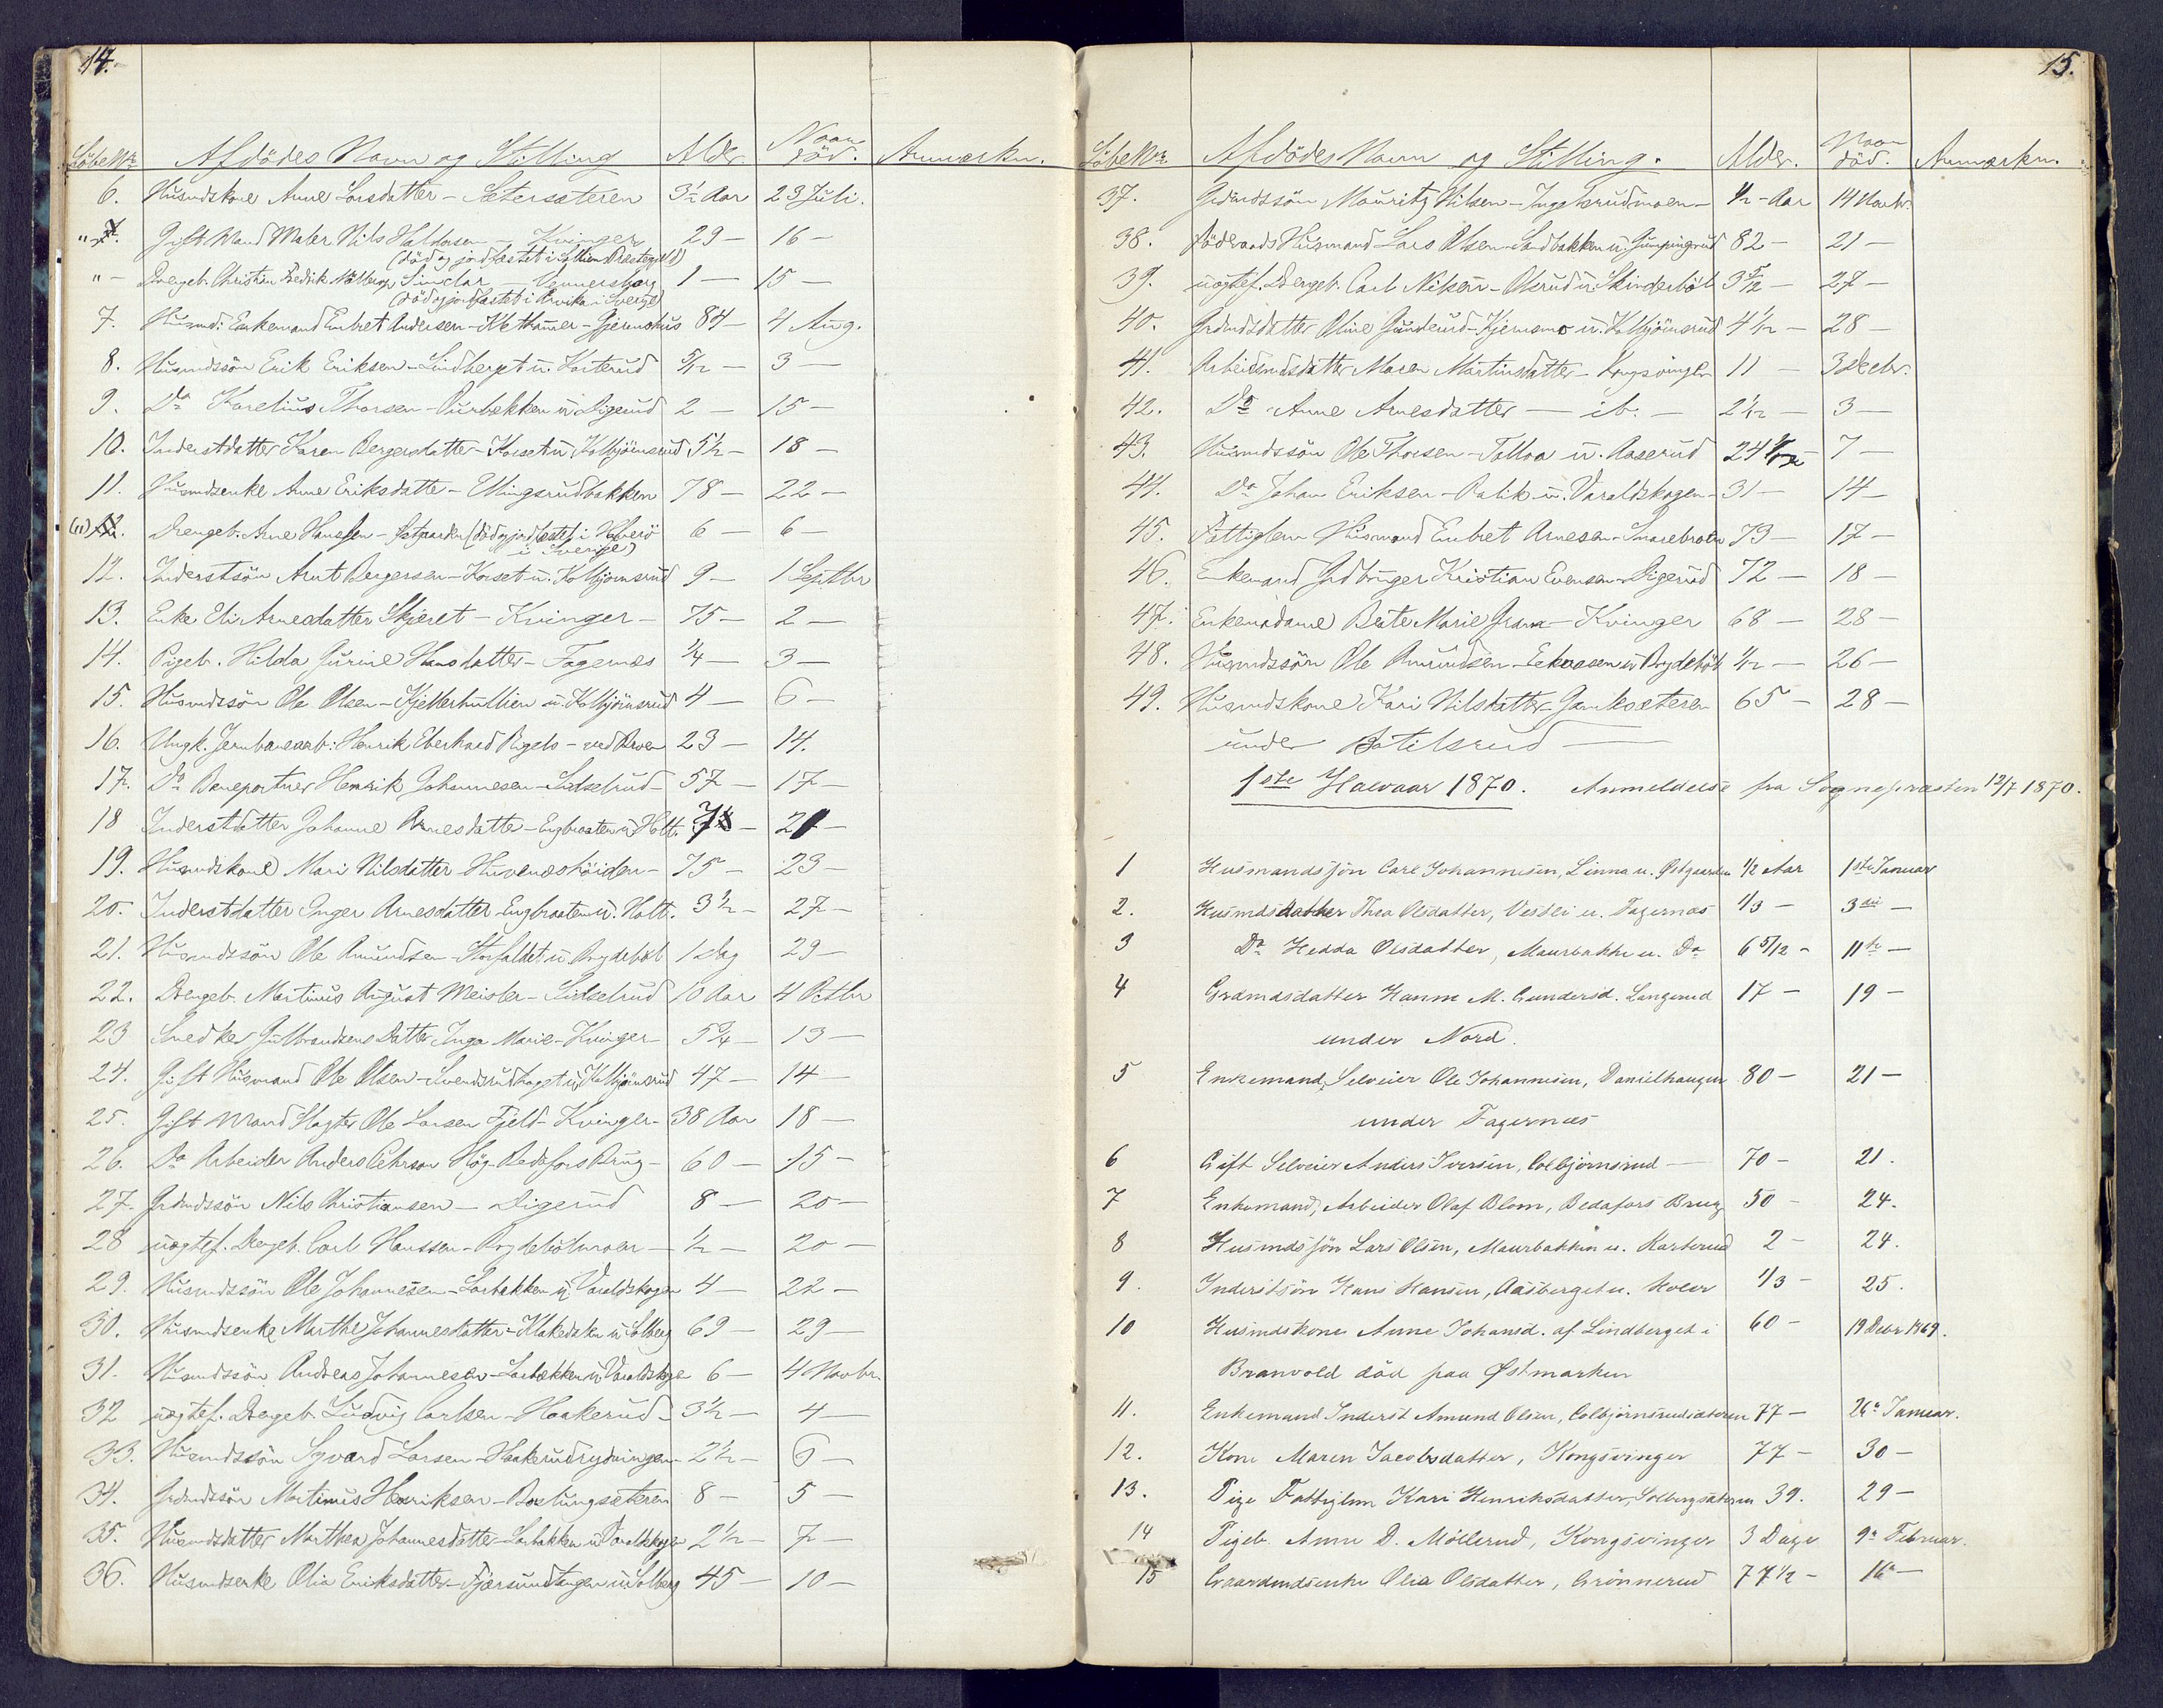 14.
LöbeNr. Afdödes Navn og Stilling Alder. Naar död. Anmærkn.
6. Husmdskone Anne Larsdatter - Sætersæteren 3½ Aar 23 Juli.
"- 7. Gift Mand Maler Nils Haldorsen - Kvinger 29 - 16 -
(död og jordfæstet i Præstegjeld)
"- Drengeb. Christian Fredrik Sinclar Vennersborg 1 - 15 -
(död og jordfæstet i Arvika i Sverge)
7. Husmd: Enkemand Embret Andersen - Gjemshus 84 - 4 Aug.
8. Husmdssön Erik Eriksen - Lindberget u. Karterud 5/12 - 3 -
9. Do Karelius Thorsen - u. Digerud 2 - 15 -
10. Inderstdatter Karen Bergersdatter - Korset u. Kolbjörnsrud 5½ - 18 -
11. Husmdsenke Anne Eriksdatter - Ellingsrudbakken 78 - 22 -
(11) 12. Drengeb. Arne Hanessen - (död og jordfæstet i
i Sverige) 6 - 6 -
12. Inderstsön Arnt Bergersen - Korset u. Kolbjörnsrud 9 - 1 Septbr
13. Enke Eli Arnesdatter Skjeret - Kvinger - 75 - 2 -
14. Pigeb. Hilda Gurine Hansdatter - Fagernæs ¼ - 3 -
15. Husmdssön Ole Olsen - u. Kolbjörnsrud 4 - 6 -
16. Ungk. Jernbanearb: Henrik Eberhard - ved 23 - 14.
17. Do Banepartner Henrik Johannesen - Lidselrud - 57 - 17 -
18 Inderstdatter Johanne Arnesdatter - Engbraaten u. Holt. 7 - 21 -
19. Husmdskone Mari Nilsdatter - 75 - 23 -
20. Inderstdatter Inger Arnesdatter - Engbraaten u. Holt. 3½ - 27 -
21. Husmdssön Ole Amundsen - Storfaldet u. Brydeböl 1 dag 29 -
22. Drengeb. Martinus August Meisler - Lidselrud 10 Aar 4 Octbr
23 Snedker Gulbrandsens Datter Inga Marie - Kvinger - 5¾ - 13 -
24. Gift Husmand Ole Olsen - Svendsrudhaget u. Kolbjörnsrud 47 - 14 -
25. Gift Mand Slagter Ole Larsen Fjeld - Kvinger - 38 Aar 18 -
26. Do Arbeider Anders Pehrson Hög - Bedafors Brug - 60 - 15 -
27. Grdmdssön Nils Christiansen - Digerud 8 - 20 -
28 uægtef. Drengeb. Carl Hanssen - Brydebölmoen - ½ - 20 -
29. Husmdssön Ole Johannesen - Larbakken u. Varaldskogen 4 - 22 -
30. Husmdsenke Marthe Johannesdatter - u. Solberg 69 - 29 -
31. Husmdssön Andreas Johannesen - Larbakken u. Varaldskogen 6 - 4 Novbr.
32 uægtef. Drengeb. Ludvig Carlsen - Haakerud - 3½ - 4 -
33. Husmdssön Syvard Larsen - Haakerudrydningen - 2½ - 6 -
34. Grdmdssön Martinus Henriksen - Bastungsæteren 8 - 5 -
35. Husmdsdatter Marthea Johannesdatter - Larbakken u. Varaldskogen 2½ - 7 -
36. Husmdsenke Olia Eriksdatter - Tjersundtangen u. Solberg 45 - 10 -
15.
LöbeNr. Afdödes Navn og Stilling. Alder. Naar död. Anmærkn.
37. Grdmdssön Mauritz Nilsen - Ingelsrudmoen - ½ - Aar 14 Novbr.
38. Föderaads Husmand Lars Olsen - Sandbakken u. Gumpingrud 82 - 21 -
39. uægtef. Drengeb. Carl Nilsen - Olsrud u. Skinderböl 3 5/12 - 27 -
40. Grdmdsdatter Oline Gunderud - Kjernsmo u. Kolbjörnsrud 4 1/12 - 28 -
41. Arbeidsmdsdatter Maren Martinsdatter - Kongsvinger 11 - 3 Decbr.
42. Do Anne Arnesdatter - ib. - 2 1/12 - 3 -
43. Husmdssön Ole Thorsen - Tolloa u. Aaserud 24 - 7 -
44. Do Johan Eriksen - Ralik u. Varaldskogen - 31 - 14 -
45. Fattiglem Husmand Embret Arnesen - 73 - 17 -
46. Enkemand Grdbruger Kristian Evensen - Digerud 72 - 18 -
47. Enkemadame Beate Marie Gram - Kvinger 68 - 28 -
48. Husmdssön Ole Amundsen - Eekaasen u. Brydeböl 1/12 - 26 -
49. Husmdskone Kari Nilsdatter - Gamlesæteren 65 - 28 -
under Botilsrud -
1ste Halvaar 1870. Anmeldelse fra Sognepræsten 12/7 1870.
1 Husmandssön Carl Johannesen, Linna u. Östgaarden 1/2 Aar 1ste Januar
2. Husmdsdatter Thea Olsdatter, Vestli u. Fagernæs 1/3 - 3die -
3 Do Hedda Olsdatter, Maurbakken u. Do 6 5/12 - 11te -
4 Grdmdsdatter Hanne M. Gundersd. Langerud 17 - 19 -
under Nord.
5 Enkemand, Selveier Ole Johannesen, Danielhaugen 80 - 21 -
under Fagernæs
6 Gift Selveier Anders Iversen, Colbjörnsrud - 70 - 21.
7 Enkemand, Arbeider Olaf Blom, Bedafors Brug 50 - 24.
8 Husmdssön Lars Olsen, Maurbakken u. Karterud 2 - 24.
9. Inderstsön Hans Hansen, Aasberget u. Hober 1/3 - 25.
10 Husmdskone Anne Johansd. af Lindberget i 60 - 19 Debr 1869.
Branvold död paa Østmarken
11. Enkemand Inderst Amund Olsen, Colbjörnsrudsæteren 77 - 26. Januar.
12. Kone Maren Jacobsdatter, Kongsvinger 77 - 30 -
13. Pige Fattiglem Kari Henriksdatter, Solbergsæteren 39. 29 -
14 Pigeb. Anne D. Möllerud, Kongsvinger 3 Dage 9. Februar.
15 Gaardmdsenke Olia Olsdatter, Grönnerud 77 1/2 - 16 -